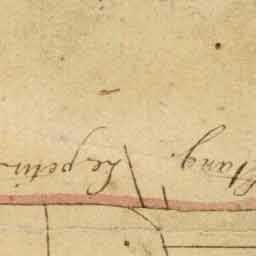 Le petit
Etang.